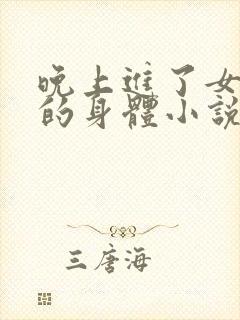 晚上進了女
的身體小説
三唐海